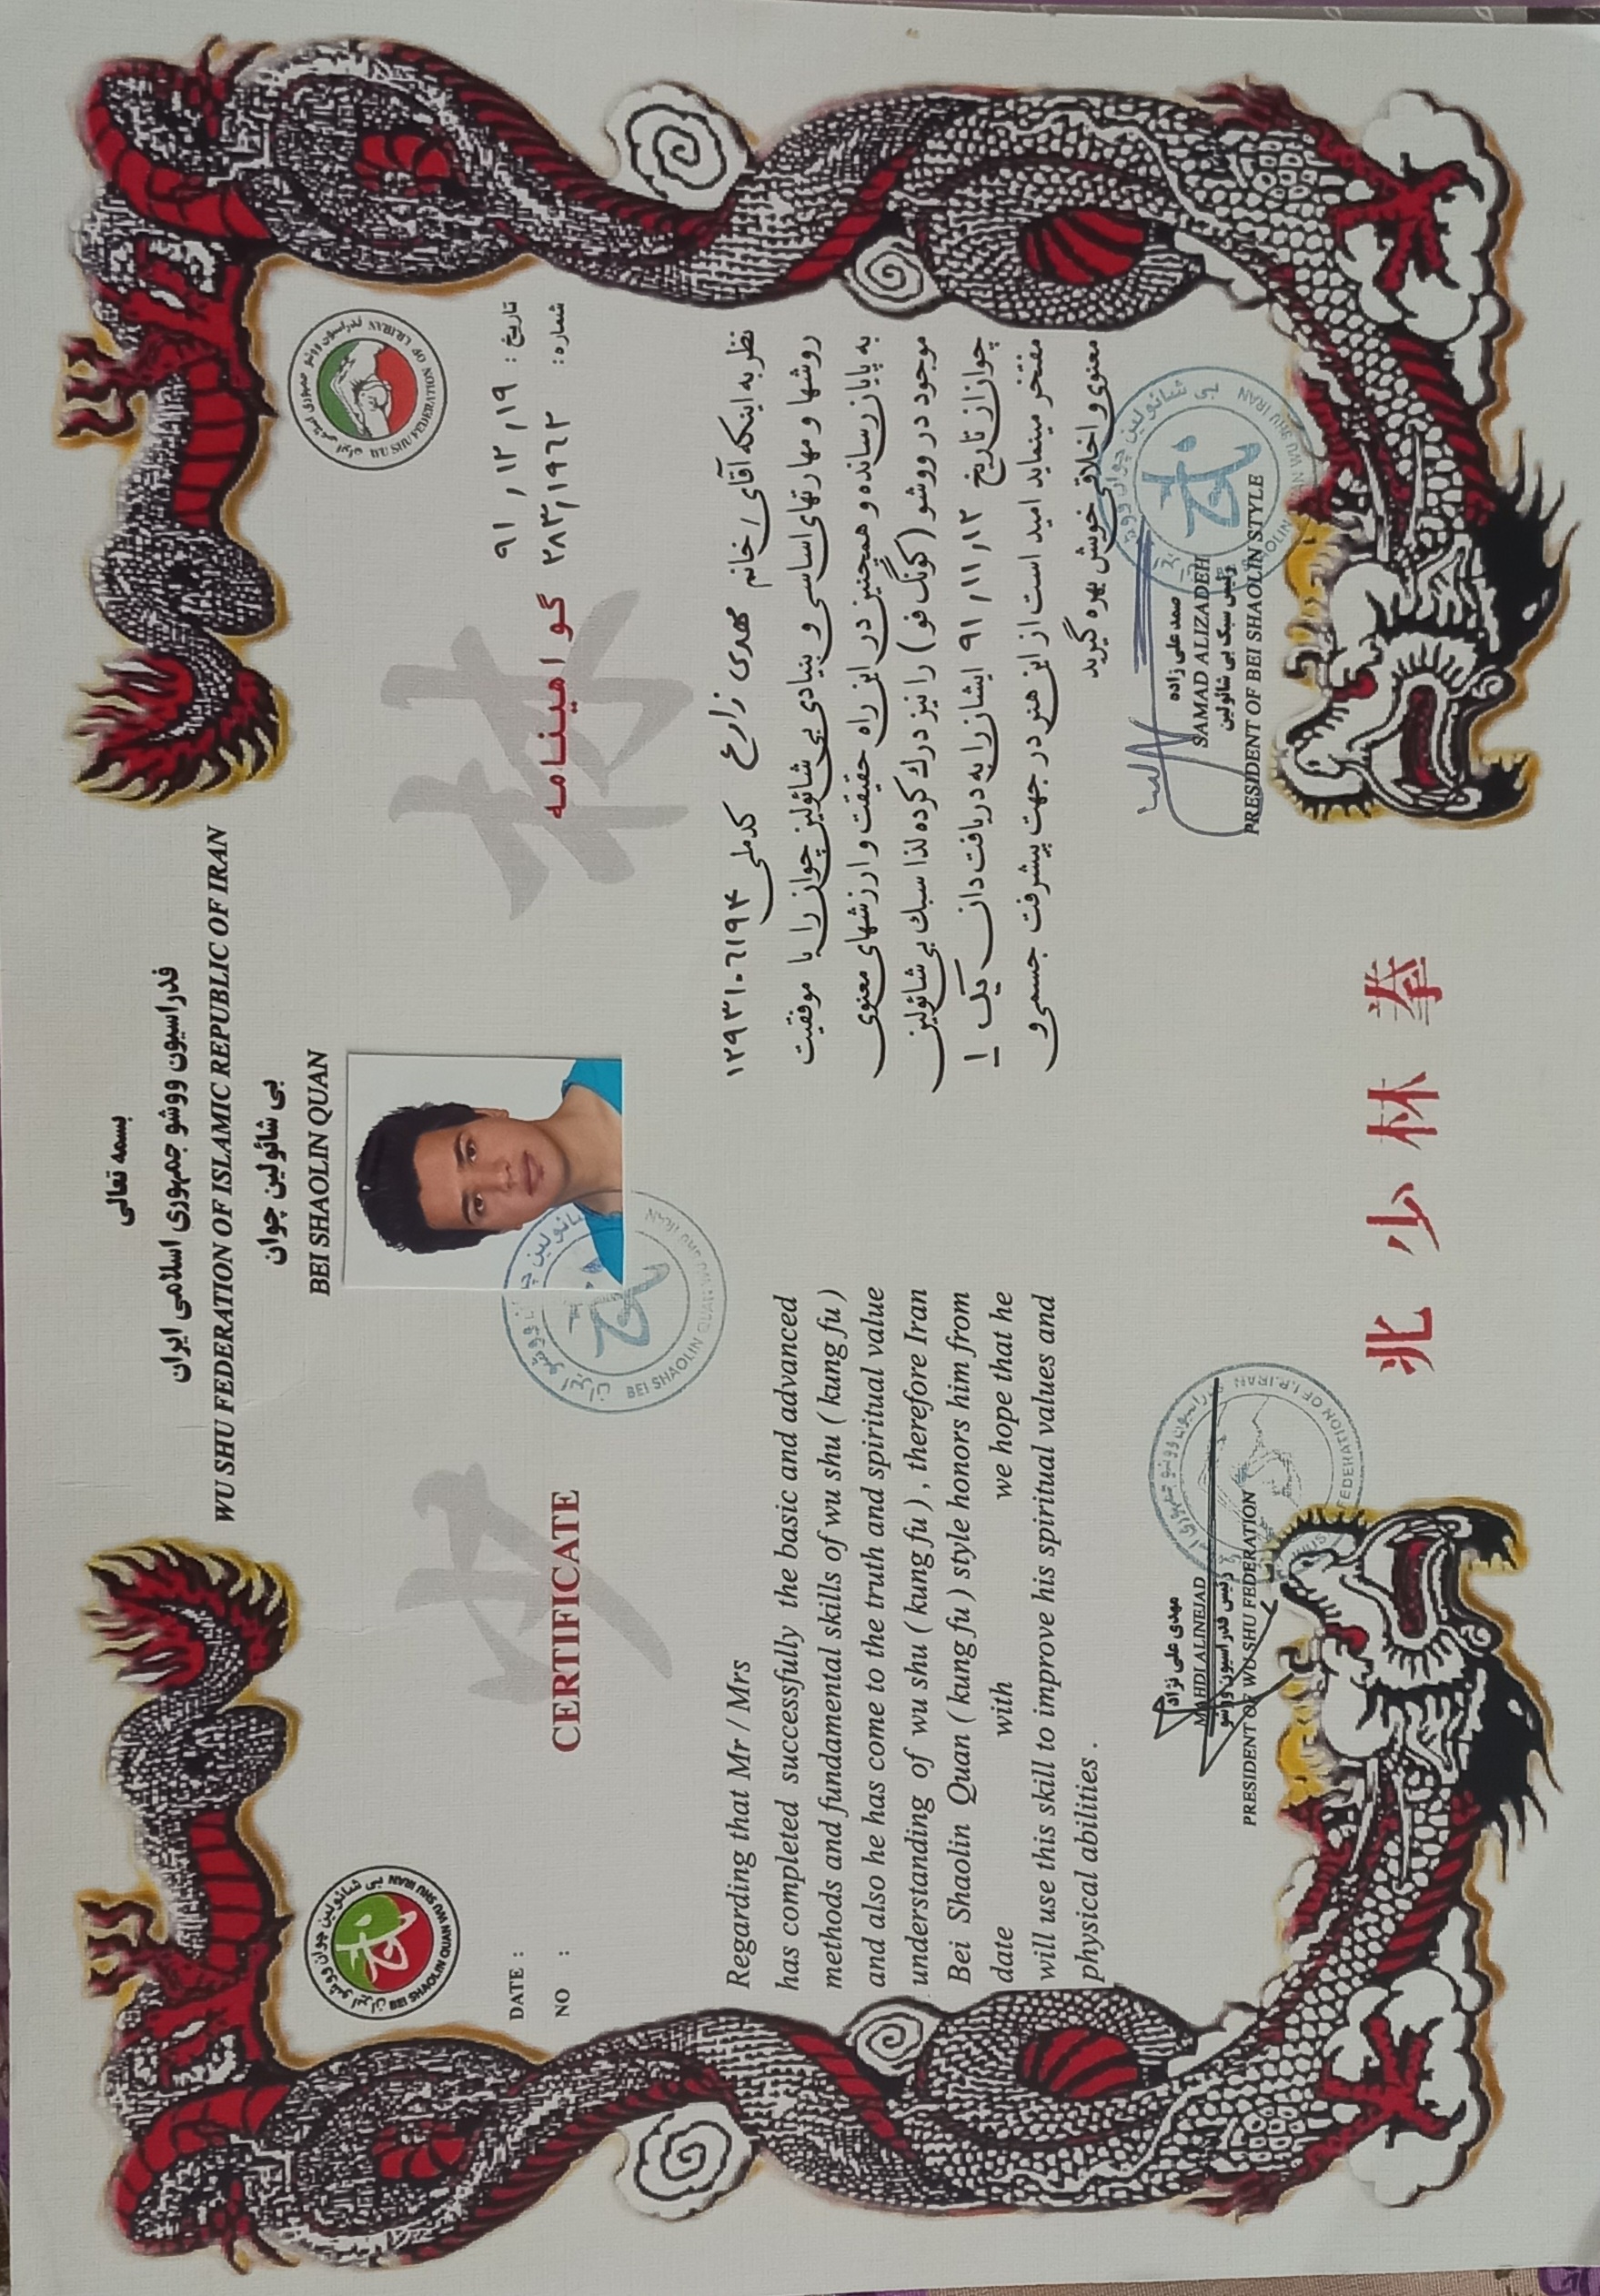 بسمه تعالی
فدراسیون ووشو جمهوری اسلامی ایران
WU SHU FEDERATION OF ISLAMIC REPUBLIC OF IRAN
بی شائولین چوان
BEI SHAOLIN QUAN
فدراسیون ووشو جمهوری اسلامی ایران
WU SHU FEDERATION OF I.R.IRAN
بی شائولین چوان ووشو ایران
BEI SHAOLIN QUAN WU SHU IRAN
تاریخ : ۹۱/۱۲/۱۹
شماره: ۲۸۳/۱۹۶۲
DATE :
NO :
گواهینامه
نظر به اینکه آقای/خانم مهدی زارع کدملی ۱۲۹۳۱۰۶۱۹۴
روشها و مهارتهای اساسی و بنیادی بی شائولین چوان را با موفقیت
به پایان رسانده و همچنین در این راه حقیقت و ارزشهای معنوی
موجود در ووشو (کونگ فو) را نیز درک کرده لذا سبک بی شائولین
چوان از تاریخ ۹۱/۱۱/۱۲ ایشان را به دریافت دان یک ۱
مفتخر مینماید امید است از این هنر در جهت پیشرفت جسمی و
معنوی و اخلاقی خویش بهره گیرید
CERTIFICATE
Regarding that Mr / Mrs
has completed successfully the basic and advanced
methods and fundamental skills of wu shu ( kung fu )
and also he has come to the truth and spiritual value
understanding of wu shu ( kung fu ) , therefore Iran
Bei Shaolin Quan ( kung fu ) style honors him from
date with we hope that he
will use this skill to improve his spiritual values and
physical abilities .
صمد علی زاده
SAMAD ALIZADEH
رئیس سبک بی شائولین
PRESIDENT OF BEI SHAOLIN STYLE
مهدی علی نژاد
MAHDI ALINEJAD
رئیس فدراسیون ووشو
PRESIDENT OF WU SHU FEDERATION
北少林拳